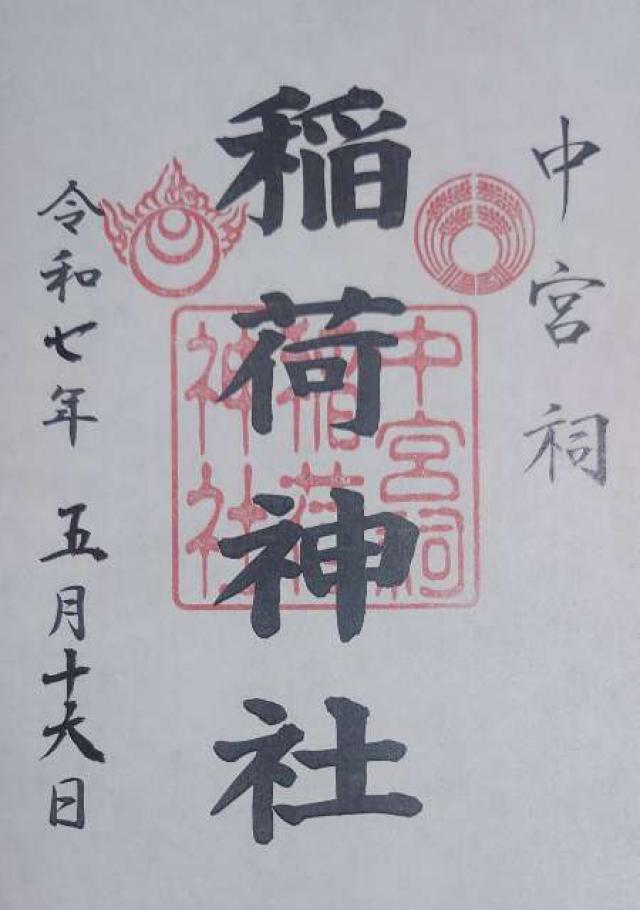 中宮祠
稲荷神社
中宮祠
稲荷
神社
令和七年 五月十六日